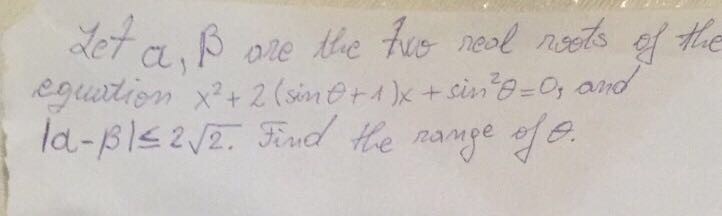 Let α, β are the two real roots of the
equation x²+2(sinθ+1)x+sin²θ=0, and
|α-β|≤2√2. Find the range of θ.